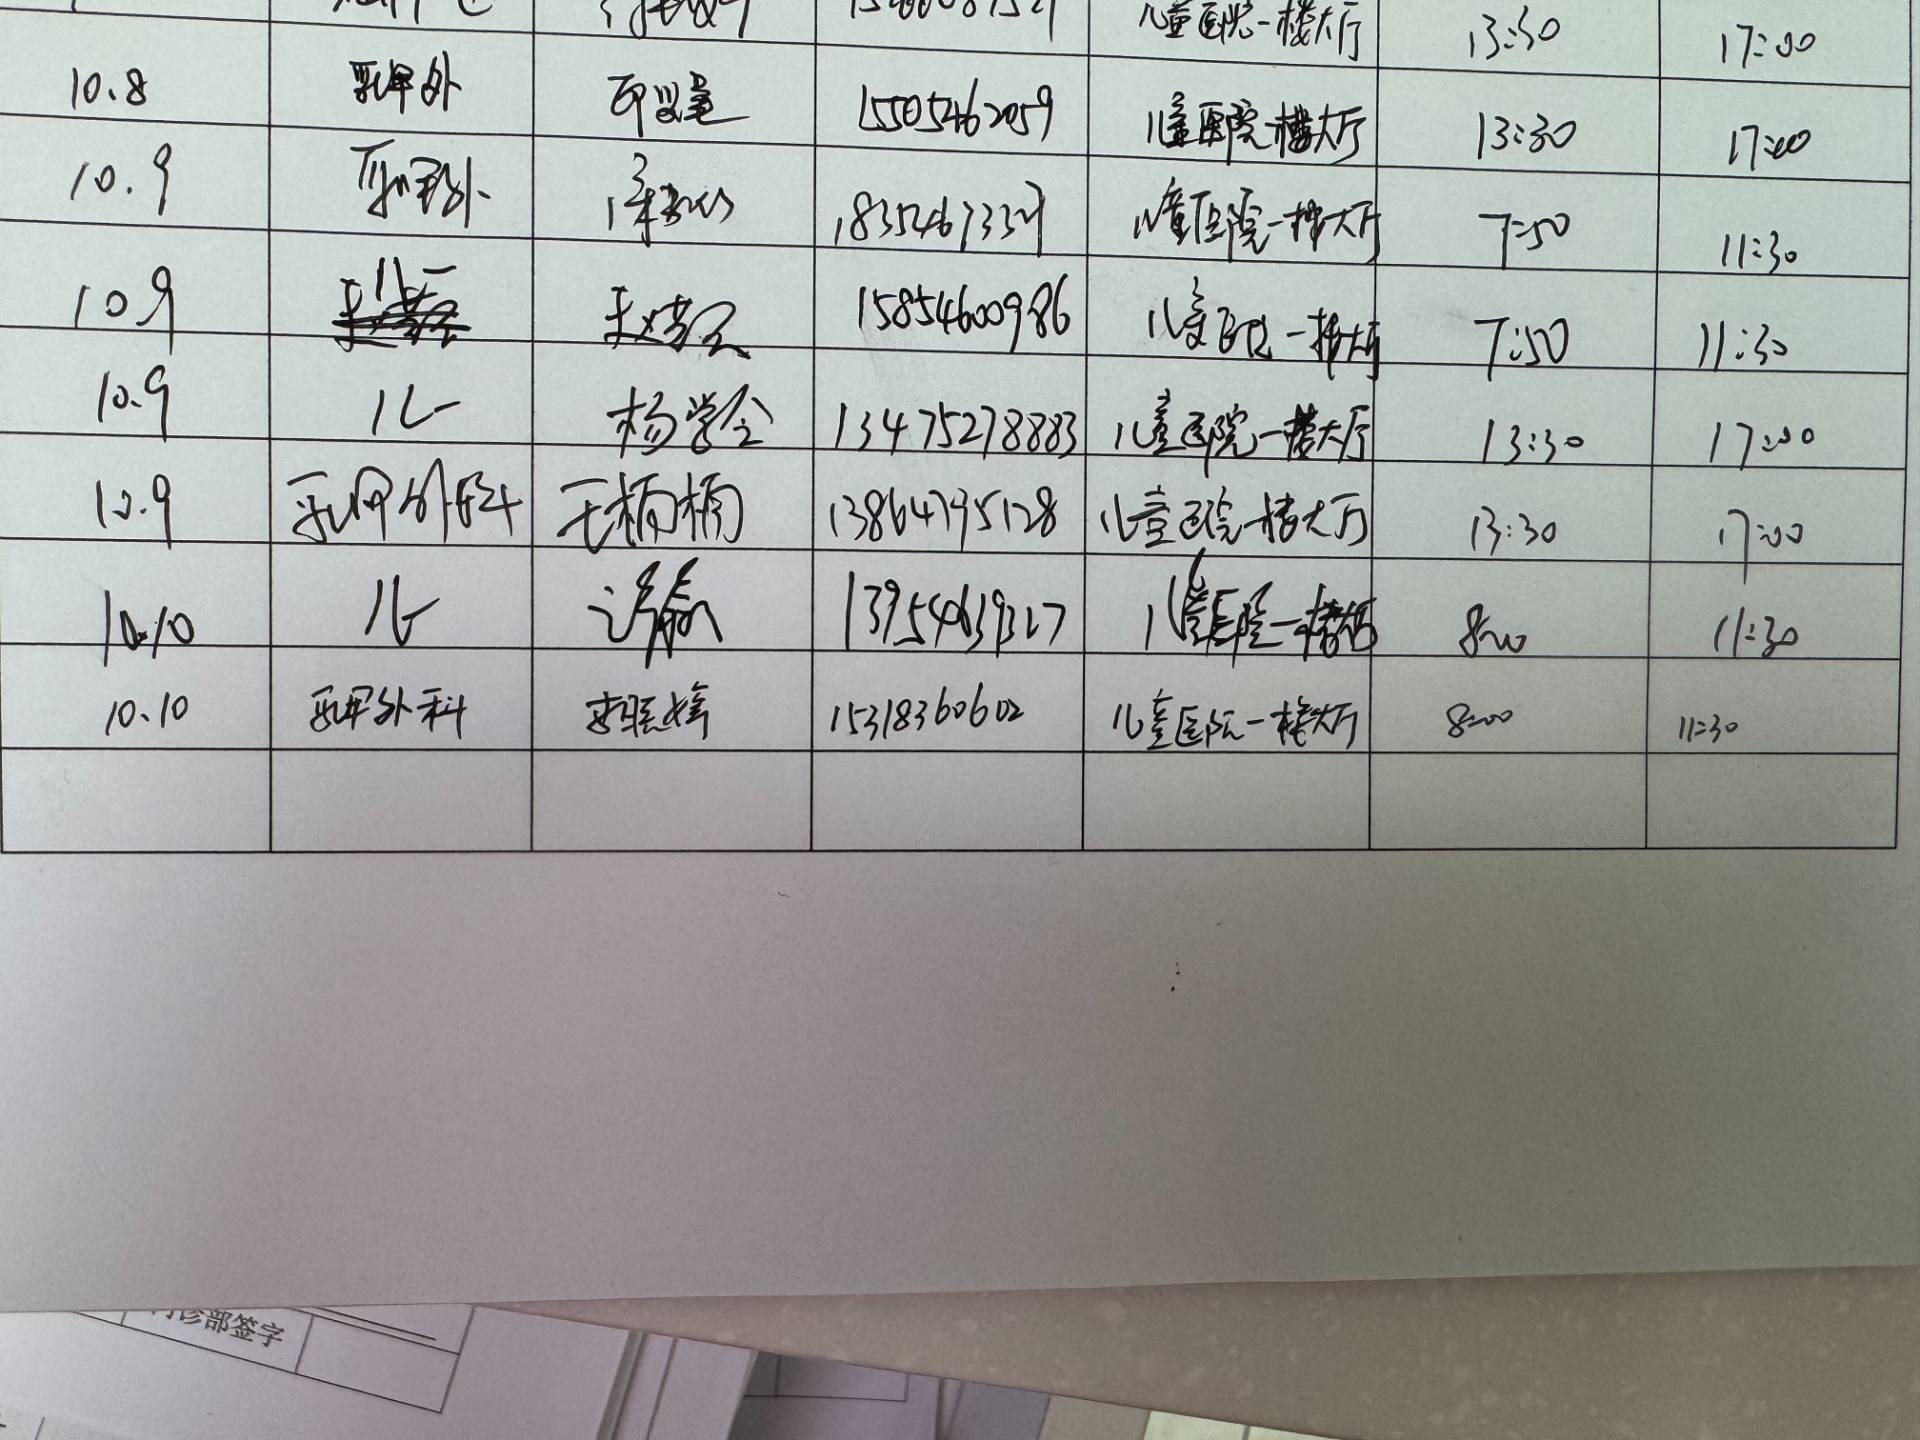 儿童医院一楼大厅 13:30 17:00
10.8 乳甲外 15505462059 儿童医院一楼大厅 13:30 17:00
10.9 乳甲外 儿童医院一楼大厅 7:50 11:30
10.9 儿一 15854600986 儿童医院一楼大厅 7:50 11:30
10.9 儿一 杨学全 13475278883 儿童医院一楼大厅 13:30 17:00
10.9 乳甲外科 王楠楠 13864795128 儿童医院一楼大厅 13:30 17:00
10.10 儿一 儿童医院一楼大厅 8:00 11:30
10.10 乳甲外科 15318360602 儿童医院一楼大厅 8:00 11:30
门诊部签字